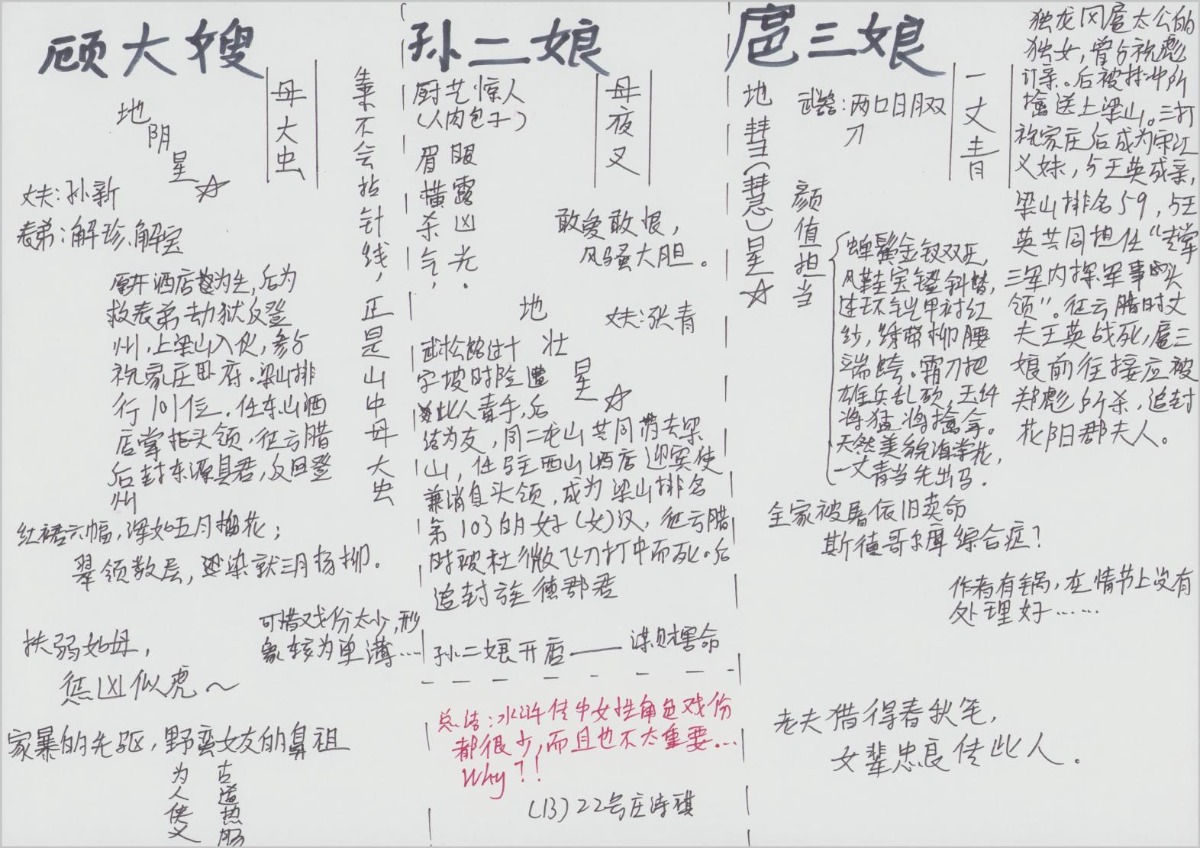 顾大嫂
母大虫
地阴星
丈夫:孙新
表弟:解珍、解宝
生来不会拈针线,正是山中母大虫
原开酒店为生,后为
救表弟劫狱反登
州,上梁山入伙,参与
祝家庄卧府。梁山排
行101位。任东山酒
店掌招头领,征方腊
后封东源县君,反回登
州
红裙六幅,浑如五月榴花;
翠领数层,染就三月杨柳。
可惜戏份太少,形
象较为单薄…
扶弱如母,
惩凶似虎~
家暴的先驱,野蛮女友的鼻祖
为人侠义
古道热肠
孙二娘
厨艺惊人
(人肉包子)
母夜叉
眉横杀气,
眼露凶光.
敢爱敢恨,
风骚大胆。
地壮星
丈夫:张青
武松路过十
字坡时险遭
此人毒手,后
结为友,同二龙山共同前去梁
山,任驻西山酒店迎宾使
兼消息头领,成为梁山排名
第103的好(女)汉,征方腊
时被杜微飞刀打中而死。后
追封旌德郡君
孙二娘开店——谋财害命
总结:水浒传中女性角色戏份
都很少,而且也不太重要…
Why?!
(13)22号庄诗琪
扈三娘
地彗(慧)星
武器:两口日月双
刀
一丈青
颜值担当
蝉鬓金钗双压,
凤鞋宝镫斜踏,
连环铠甲衬红
纱,绣带柳腰
端跨。霜刀把
雄兵乱砍,玉纤
将猛将擒拿。
天然美貌海棠花,
一丈青当先出马.
独龙冈扈太公的
独女,曾与祝彪
订亲。后被林冲所
擒送上梁山。三打
祝家庄后成为宋江
义妹,与王英成亲,
梁山排名59,与王
英共同担任“专掌
三军内探军事头
领”。征方腊时丈
夫王英战死,扈三
娘前往接应被
郑彪所杀,追封
花阳郡夫人。
全家被屠依旧卖命
斯德哥尔摩综合症?
作者有锅,在情节上没有
处理好……
老夫借得春秋笔,
女辈忠良传此人.